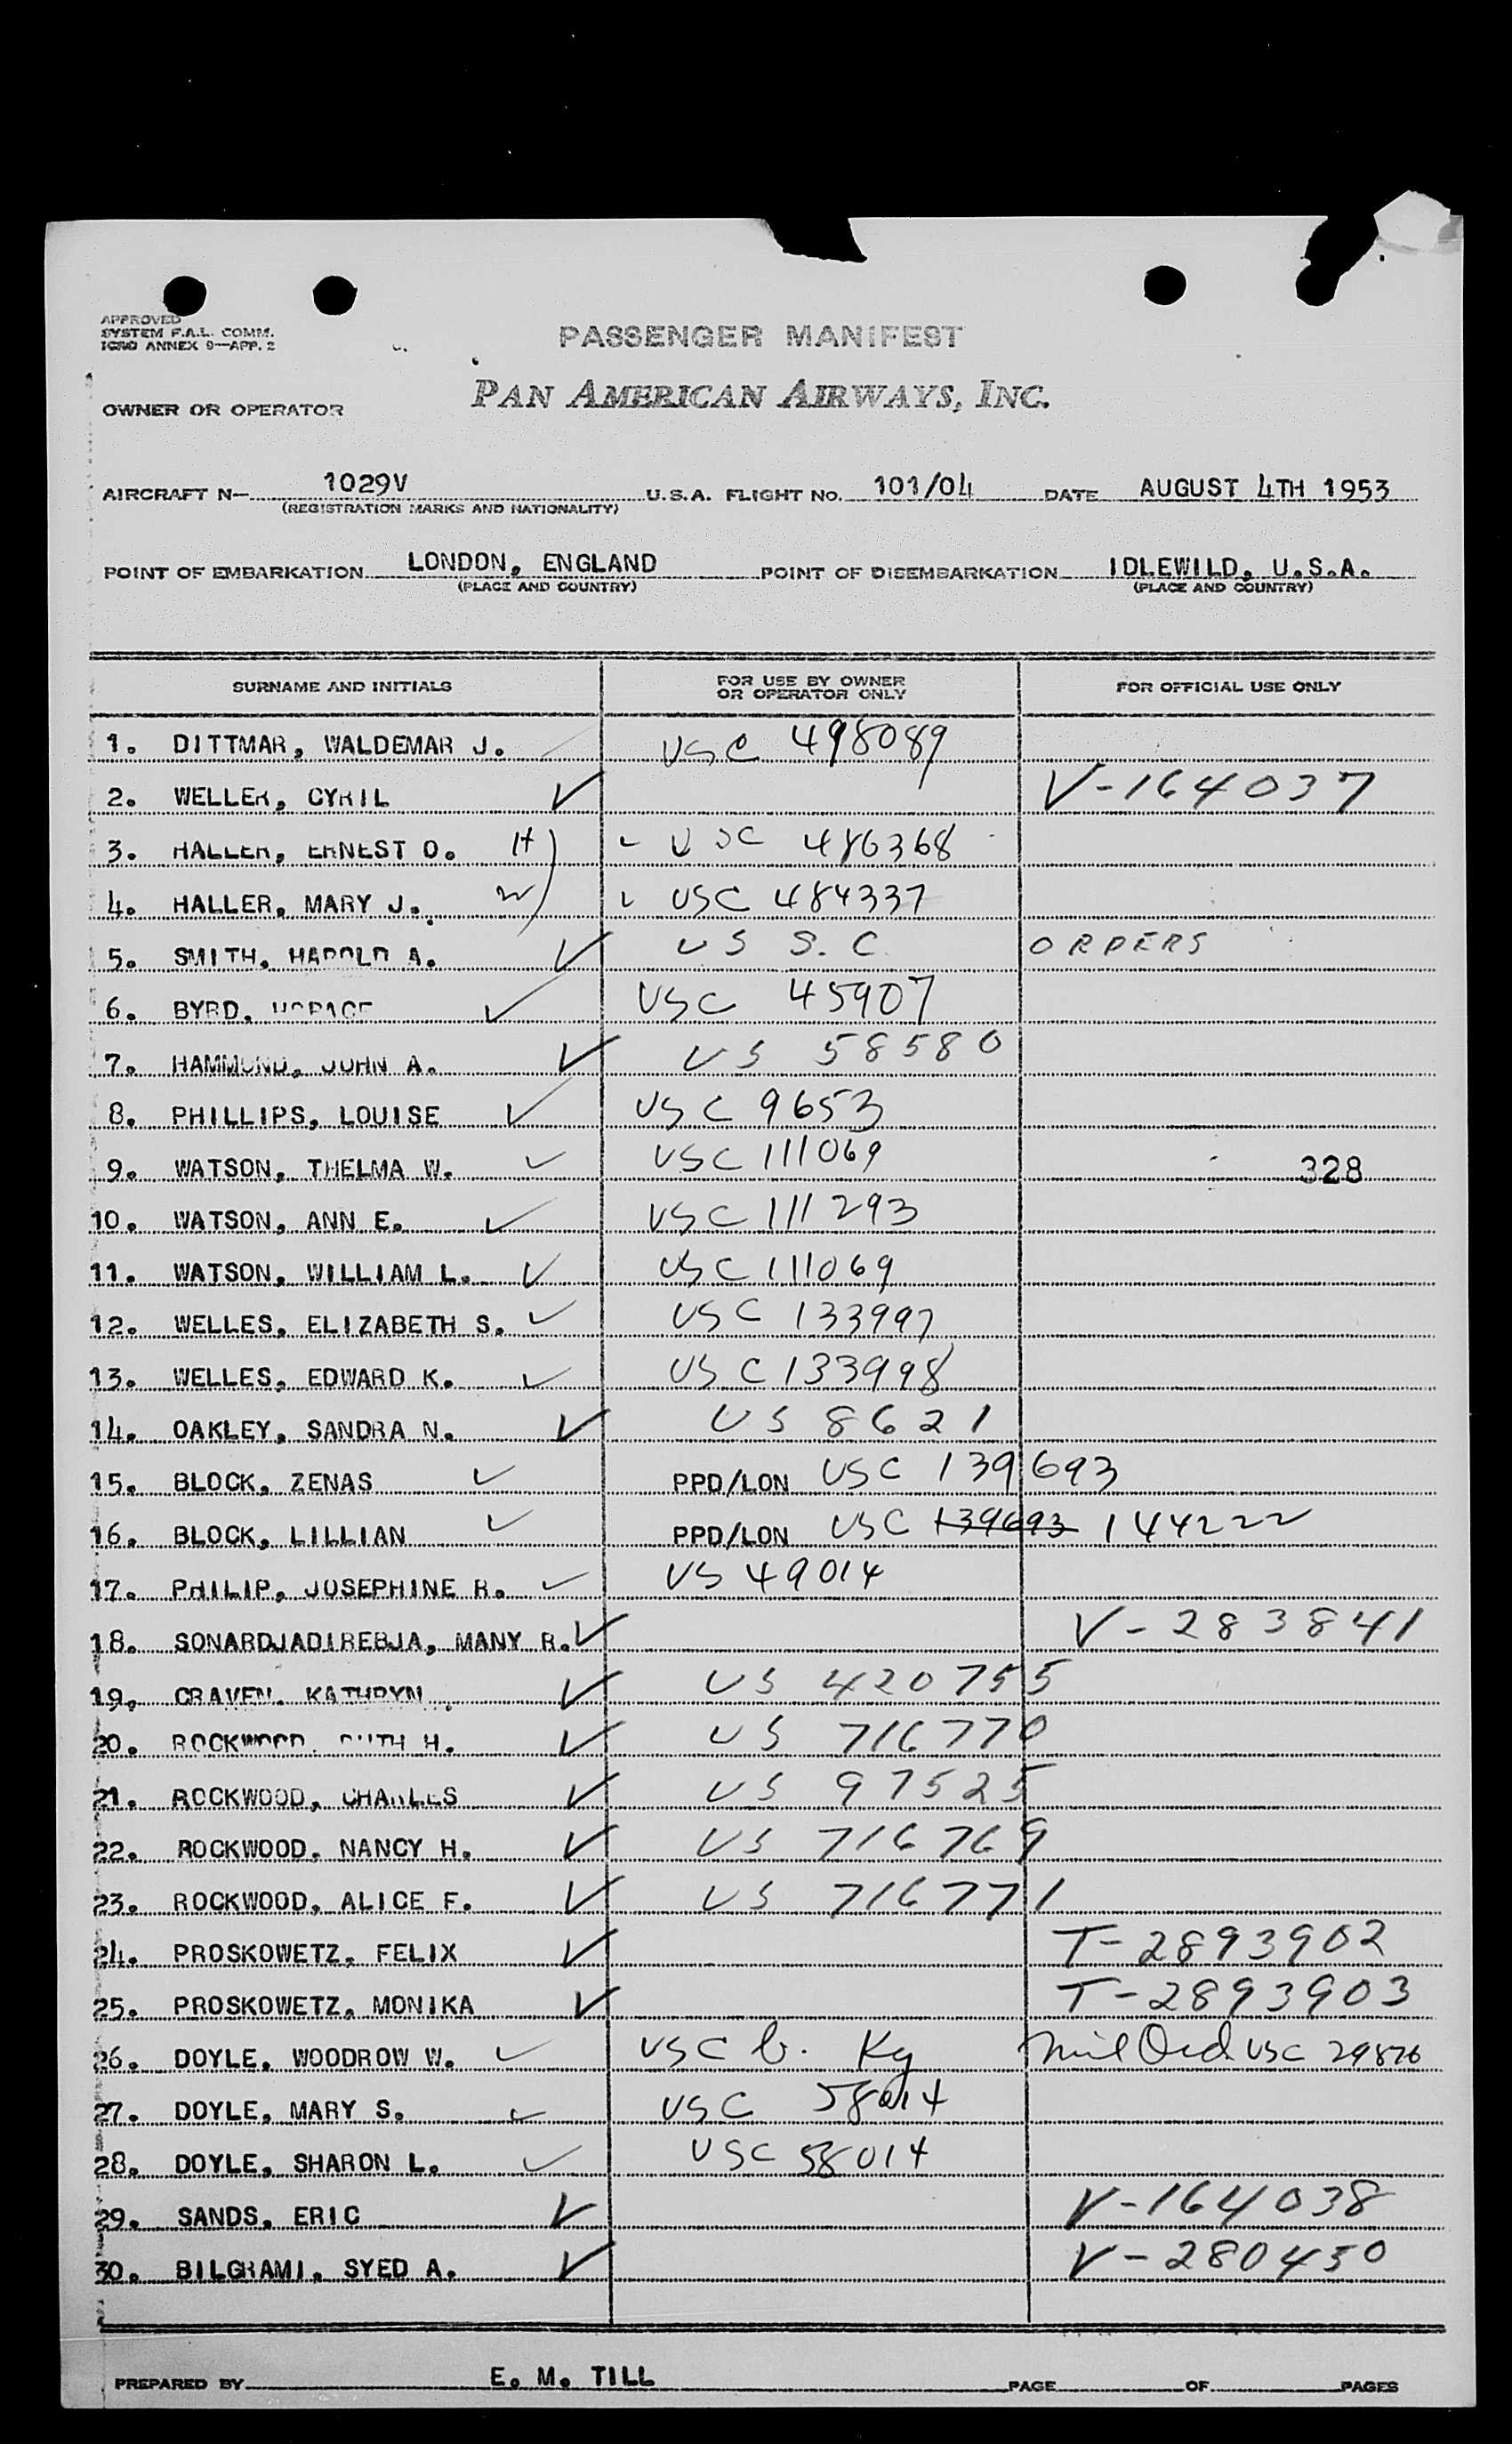 APPROVED
SYSTEM F.A.L. COMM.
ICAO ANNEX 9—APP. 2
PASSENGER MANIFEST
OWNER OR OPERATOR PAN AMERICAN AIRWAYS, INC.
AIRCRAFT N— 1029V U.S.A. FLIGHT NO. 101/04 DATE AUGUST 4TH 1953
(REGISTRATION MARKS AND NATIONALITY)
POINT OF EMBARKATION LONDON, ENGLAND POINT OF DISEMBARKATION IDLEWILD, U.S.A.
(PLACE AND COUNTRY) (PLACE AND COUNTRY)
SURNAME AND INITIALS FOR USE BY OWNER OR OPERATOR ONLY FOR OFFICIAL USE ONLY
1. DITTMAR, WALDEMAR J. USC 498089
2. WELLER, CYRIL ✓ V-164037
3. HALLER, ERNEST O. H) USC 486368
4. HALLER, MARY J. W) USC 484337
5. SMITH, HAROLD A. ✓ US S.C. ORDERS
6. BYRD, HORACE ✓ USC 45907
7. HAMMOND, JOHN A. ✓ US 58580
8. PHILLIPS, LOUISE ✓ USC 9653
9. WATSON, THELMA W. ✓ USC 111069 328
10. WATSON, ANN E. ✓ USC 111293
11. WATSON, WILLIAM L. ✓ USC 111069
12. WELLES, ELIZABETH S. ✓ USC 133997
13. WELLES, EDWARD K. ✓ USC 133998
14. OAKLEY, SANDRA N. ✓ US 8621
15. BLOCK, ZENAS ✓ PPD/LON USC 139693
16. BLOCK, LILLIAN ✓ PPD/LON USC 139693 144222
17. PHILIP, JOSEPHINE R. ✓ US 49014
18. SONARDJADIREBJA, MANY R. ✓ V-283841
19. CRAVEN, KATHRYN ✓ US 420755
20. ROCKWOOD, RUTH H. ✓ US 716770
21. ROCKWOOD, CHARLES ✓ US 97525
22. ROCKWOOD, NANCY H. ✓ US 716769
23. ROCKWOOD, ALICE F. ✓ US 716771
24. PROSKOWETZ, FELIX ✓ T-2893902
25. PROSKOWETZ, MONIKA ✓ T-2893903
26. DOYLE, WOODROW W. ✓ USC b. Ky Mil Ord USC
27. DOYLE, MARY S. ✓ USC 58014
28. DOYLE, SHARON L. ✓ USC 58014
29. SANDS, ERIC ✓ V-164038
30. BILGRAMI, SYED A. ✓ V-280450
PREPARED BY E. M. TILL PAGE OF PAGES